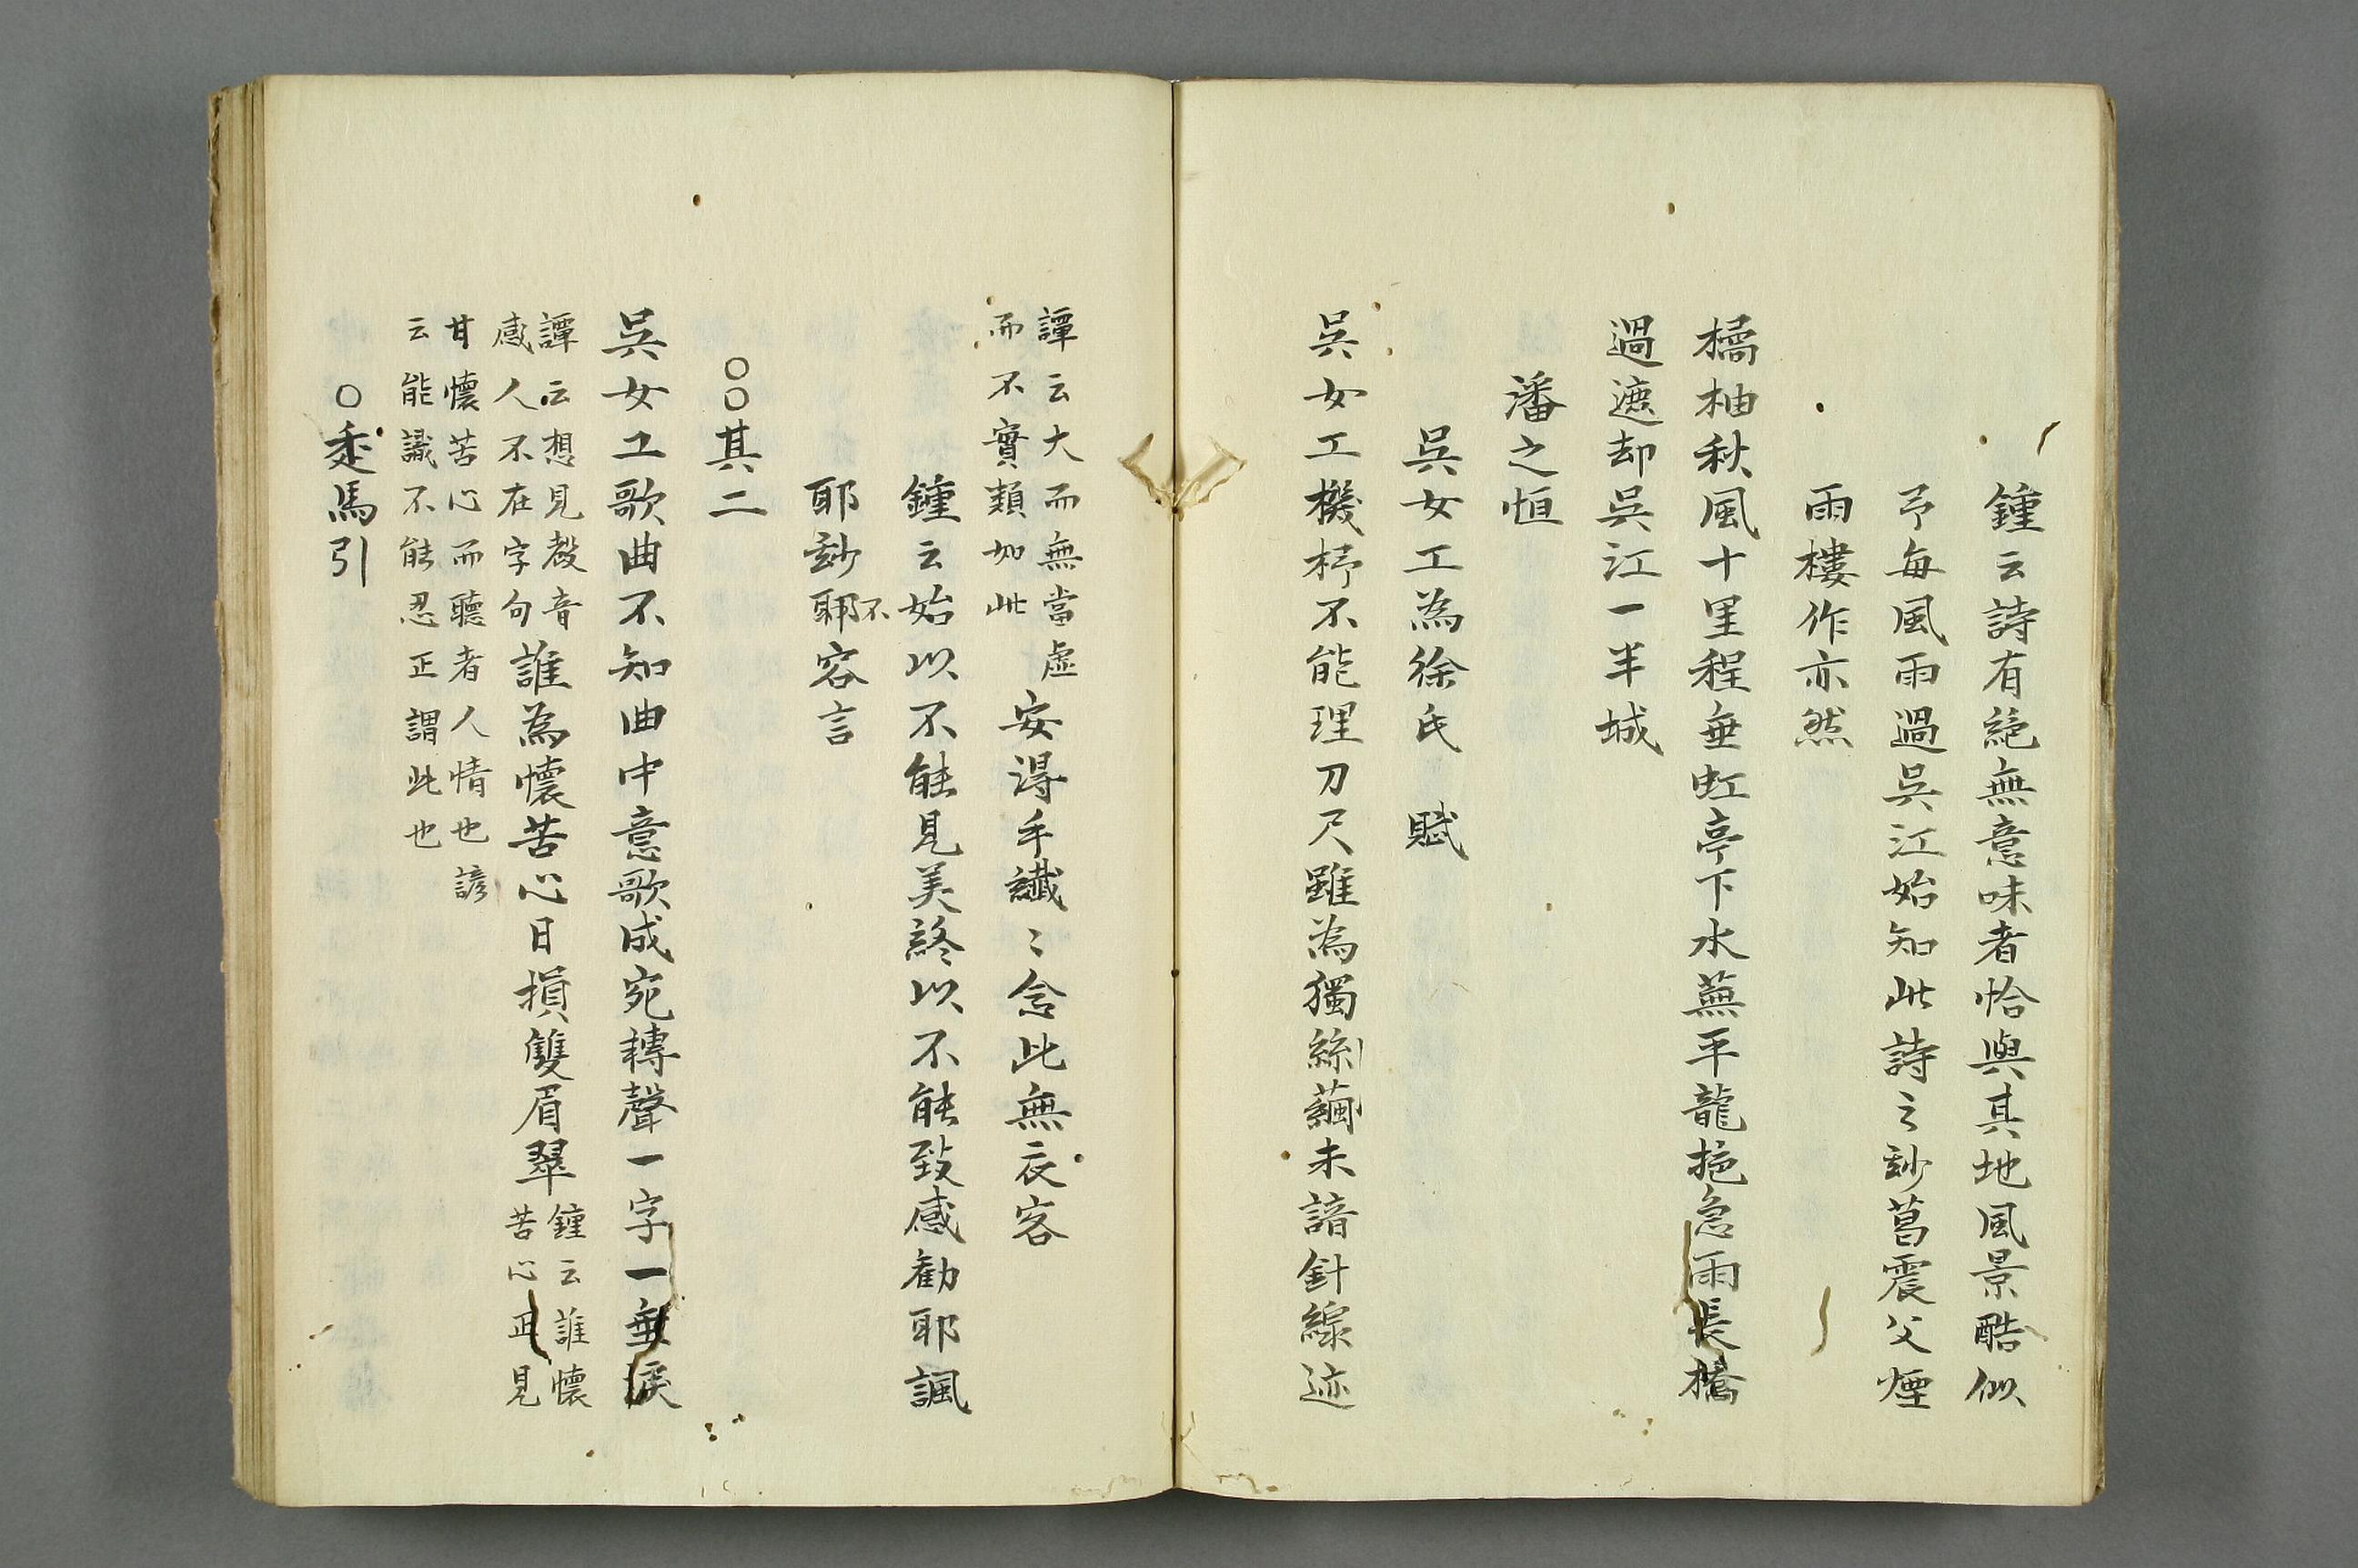 鍾云詩有絕無意味者恰與其地風景酷似
予每風雨過吳江始知此詩之玅菖震父煙
雨樓作亦然
橘柚秋風十里程垂虹亭下水蕪平龍拖急雨長橋
過遮却吳江一半城
潘之恒
吳女工為徐氏 賦
吳女工機杼不能理刀尺雖為獨絲繭未諳針線迹
譚云大而無當虛
而不實類如此
安得手纖〻念此無衣客
鍾云始以不能見美終以不能致感勸耶諷
耶玅耶不容言
○○其二
吳女工歌曲不知曲中意歌成宛轉聲一字一垂淚
譚云想見聲音
感人不在字句
誰為懷苦心日損雙眉翠
鍾云誰懷
苦心正見
甘懷苦心而聽者人情也諺
云能識不能忍正謂此也
○走馬引